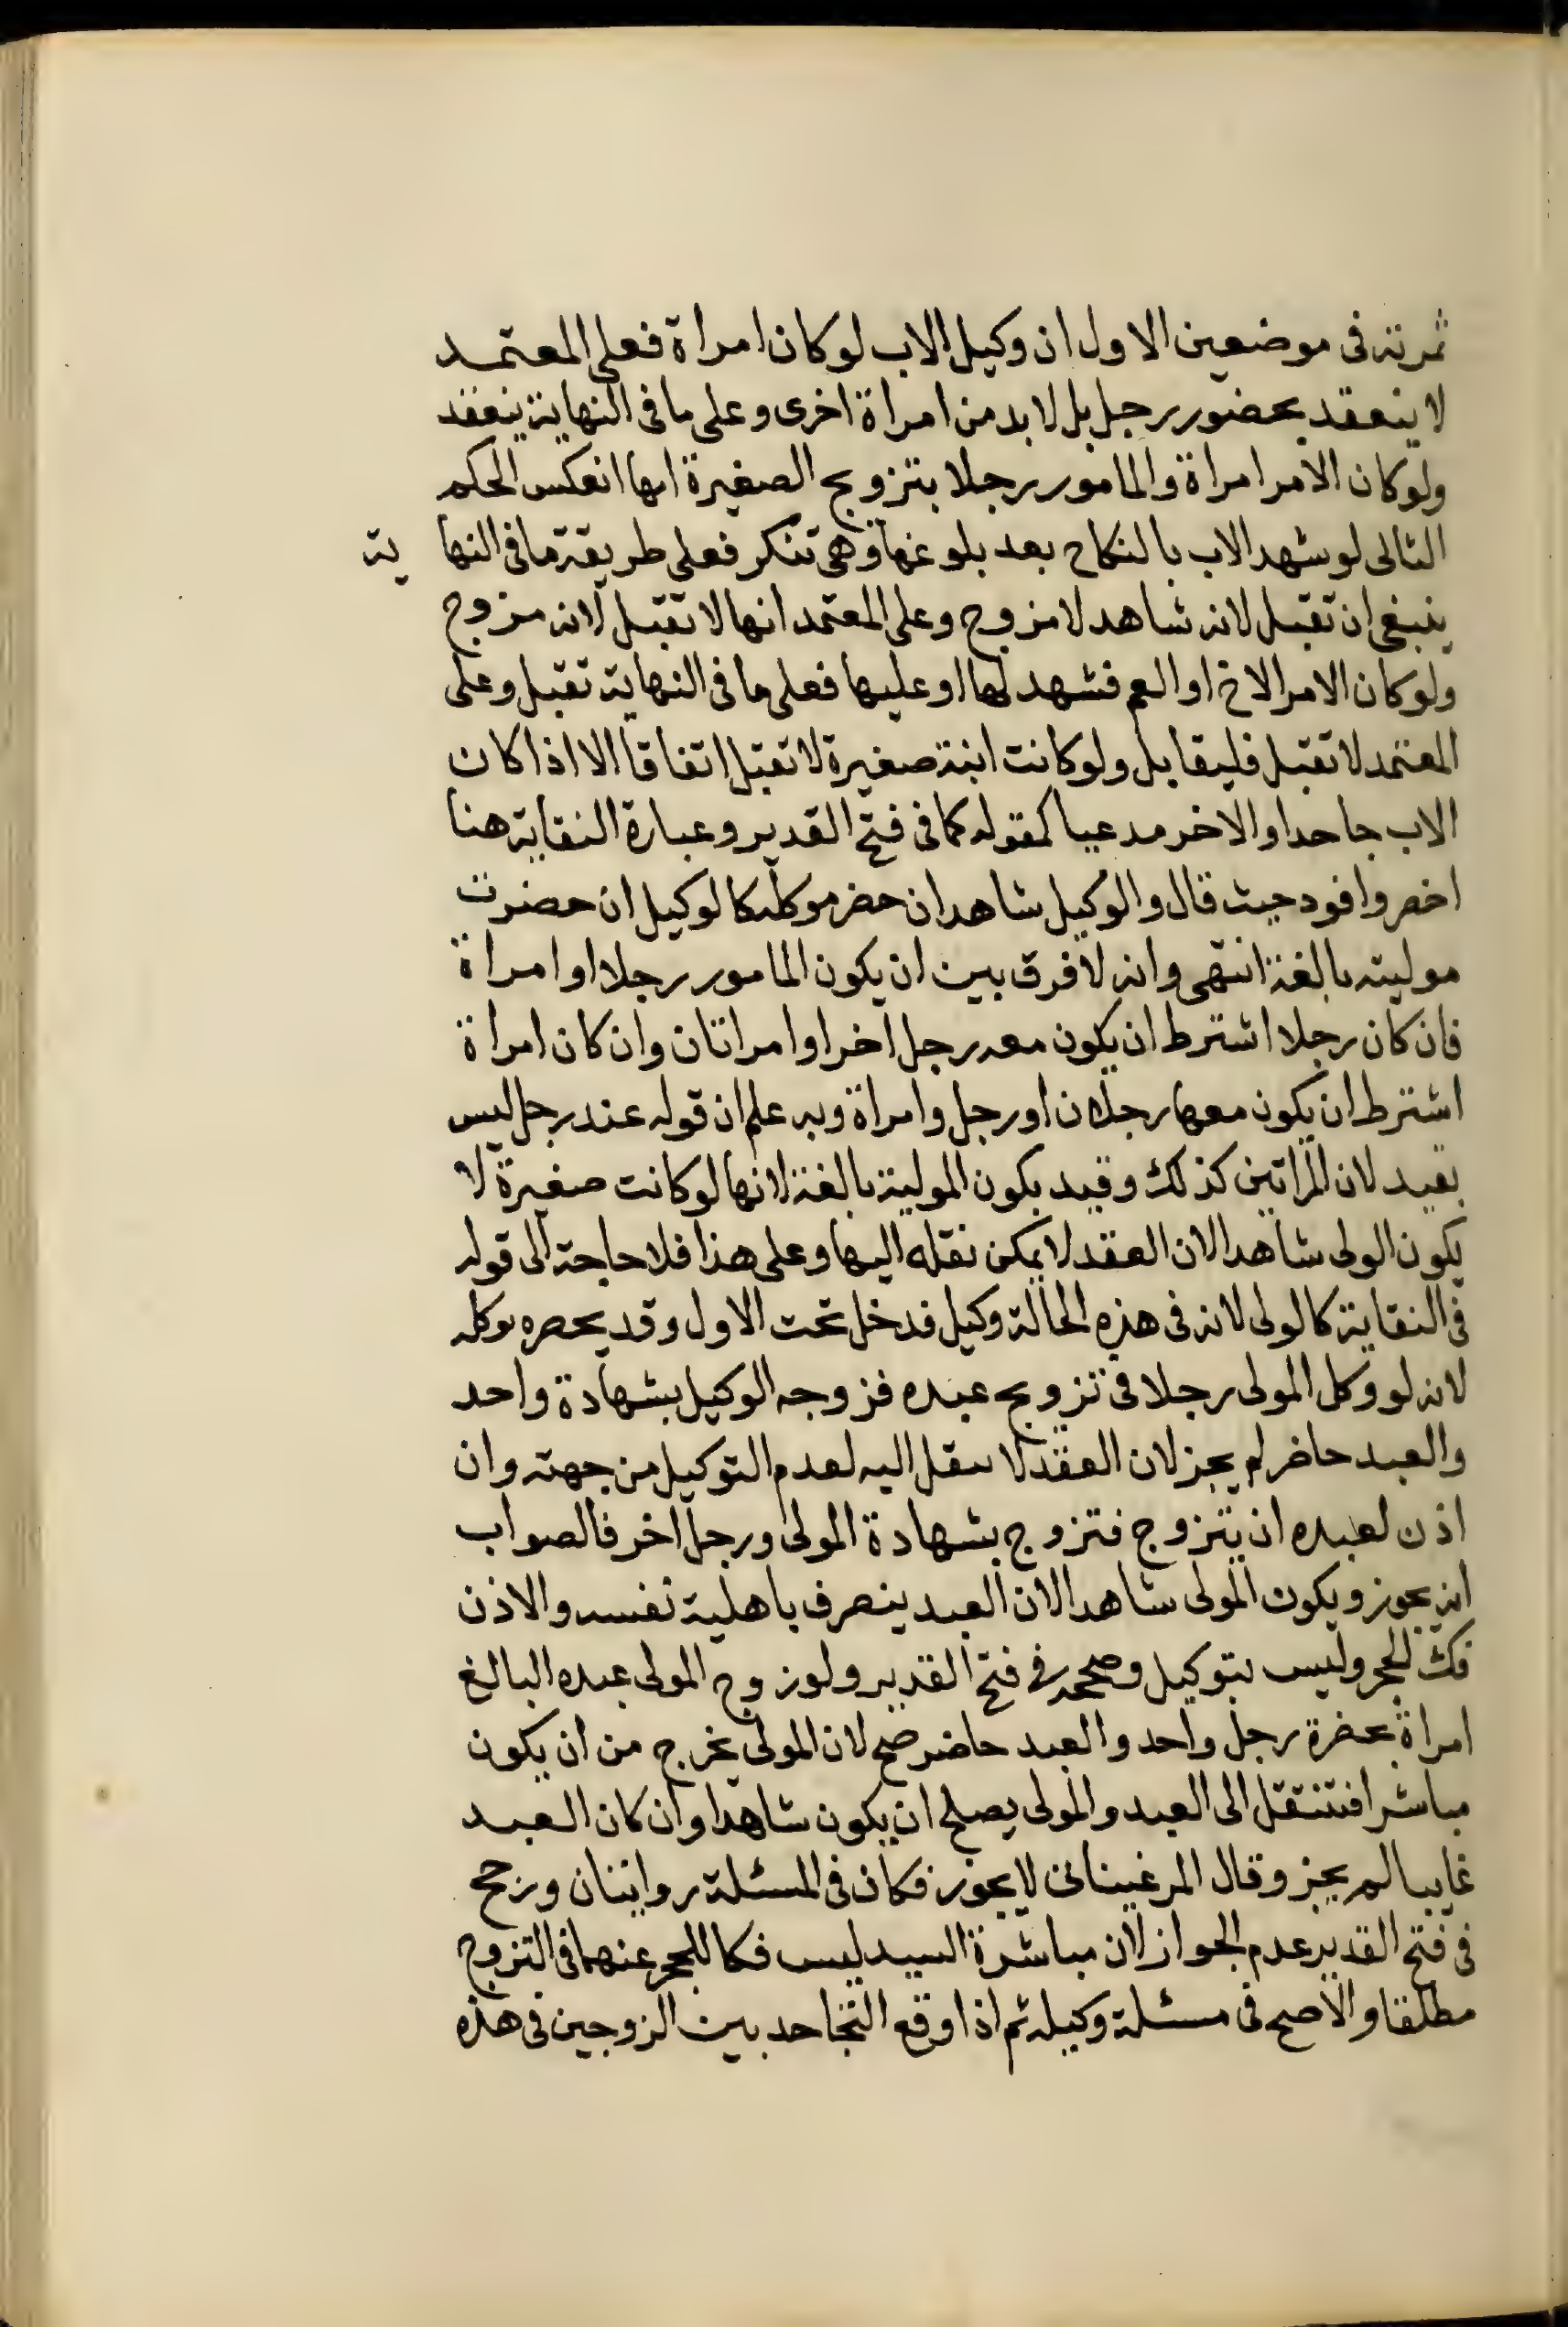 ثمرته فى موضعين الاول ان وكيل الاب لو كان امراة فعلى المعتمد
لا ينعقد بحضور رجل بل لا بد من امراة اخرى وعلى ما فى النهاية ينعقد
ولو كان الامر امراة والمامور رجلا بتزويج الصغيرة امها انعكس الحكم
الثانى لو شهد الاب بالنكاح بعد بلوغها وهى تنكر فعلى طريقة ما فى النهاية
ينبغى ان تقبل لانه شاهد لا مزوج وعلى المعتمد انها لا تقبل لانه مزوج
ولو كان الامر الاخ او العم فشهد لها او عليها فعلى ما فى النهاية تقبل وعلى
المعتمد لا تقبل فليقابل ولو كانت ابنته صغيرة لا تقبل اتفاقا الا اذا كان
الاب جاحدا والاخر مدعيا كمقوله كما فى فتح القدير وعبارة النقاية هنا
اخصر وافود حيث قال والوكيل شاهد ان حضر موكله كالوكيل ان حضرت
موليته بالغة انتهى وانه لا فرق بين ان يكون المامور رجلا او امراة
فان كان رجلا اشترط ان يكون معه رجل اخر او امراتان وان كان امراة
اشترط ان يكون معها رجلان او رجل وامراة وبه علم ان قوله عند رجل ليس
بقيد لان المراتين كذلك وقيد بكون المولية بالغة لانها لو كانت صغيرة لا
يكون الولى شاهدا لان العقد لا يمكن نقله اليها وعلى هذا فلا حاجة الى قوله
فى النقاية كالولى لانه فى هذه الحالة وكيل فدخل تحت الاول وقد بحصره موكله
لانه لو وكل المولى رجلا فى تزويج عبده فزوجه الوكيل بشهادة واحد
والعبد حاضر لم يجز لان العقد لا ينقل اليه لعدم التوكيل من جهته وان
اذن لعبده ان يتزوج فتزوج بشهادة المولى ورجل اخر فالصواب
انه يجوز ويكون المولى شاهدا لان العبد ينصرف باهلية نفسه والاذن
فك الحجر وليس بتوكيل وصححه فى فتح القدير ولو زوج المولى عبده البالغ
امراة بحضرة رجل واحد والعبد حاضر صح لان المولى يخرج من ان يكون
مباشرا فتنتقل الى العبد والمولى يصلح ان يكون شاهدا وان كان العبد
غايبا لم يجز وقال المرغينانى لا يجوز فكان فى المسئلة روايتان ورجح
فى فتح القدير عدم الجواز لان مباشرة السيد ليس فكا للحجر عنهما فى التزوج
مطلقا والاصح فى مسئلة وكيله ثم اذا وقع التجاحد بين الزوجين فى هذه